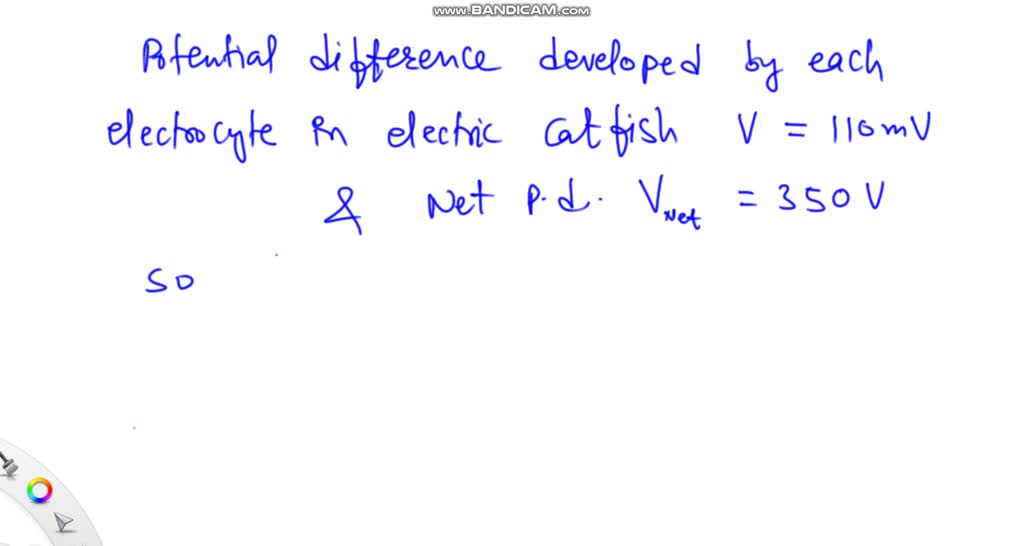 www.BANDICAM.com
Potential difference developed by each
electrocyte in electric catfish V = 110mV
& Net p.d. VNet = 350 V
so